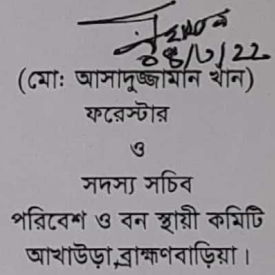 ০৪/৮/22
(মো: আসাদুজ্জামান খান)
ফরেস্টার
ও
সদস্য সচিব
পরিবেশ ও বন স্থায়ী কমিটি
আখাউড়া,ব্রাহ্মণবাড়িয়া।